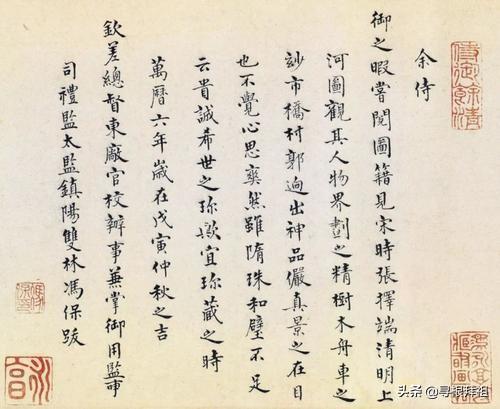 余侍
御之暇嘗閱圖籍見宋時張擇端清明上
河圖觀其人物界劃之精樹木舟車之
妙市橋村郭迥出神品儼真景之在目
也不覺心思爽然雖隋珠和璧不足
云貴誠希世之珍歟宜珍藏之時
萬曆六年歲在戊寅仲秋之吉
欽差總督東廠官校辦事兼掌御用監事
司禮監太監鎮陽雙林馮保跋
头条 @寻根拜祖